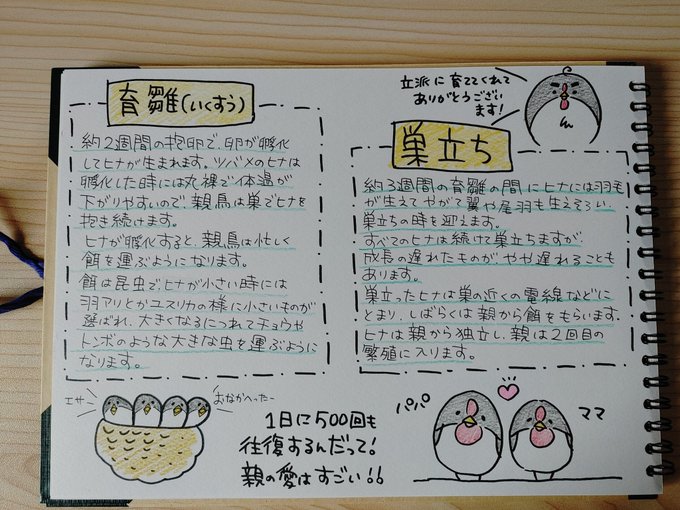 育雛(いくすう)
約2週間の抱卵で、卵が孵化
してヒナが生まれます。ツバメのヒナは
孵化した時には丸裸で体温が
下がりやすいので、親鳥は巣でヒナを
抱き続けます。
ヒナが孵化すると、親鳥は忙しく
餌を運ぶようになります。
餌は昆虫でヒナが小さい時には
羽アリとかユスリカの様に小さいものが
選ばれ、大きくなるにつれてチョウや
トンボのような大きな虫を運ぶように
なります。
エサー
おなかへったー
1日に500回も
往復するんだって!
親の愛はすごい!!
立派に育ててくれて
ありがとうござい
ます!
巣立ち
約3週間の育雛の間にヒナには羽毛
が生えてやがて翼や尾羽も生えそろい、
巣立ちの時を迎えます。
すべてのヒナは続けて巣立ちますが、
成長の遅れたものが、やや遅れることも
あります。
巣立ったヒナは巣の近くの電線などに
とまり、しばらくは親から餌をもらいます。
ヒナは親から独立し、親は2回目の
繁殖に入ります。
パパ
ママ